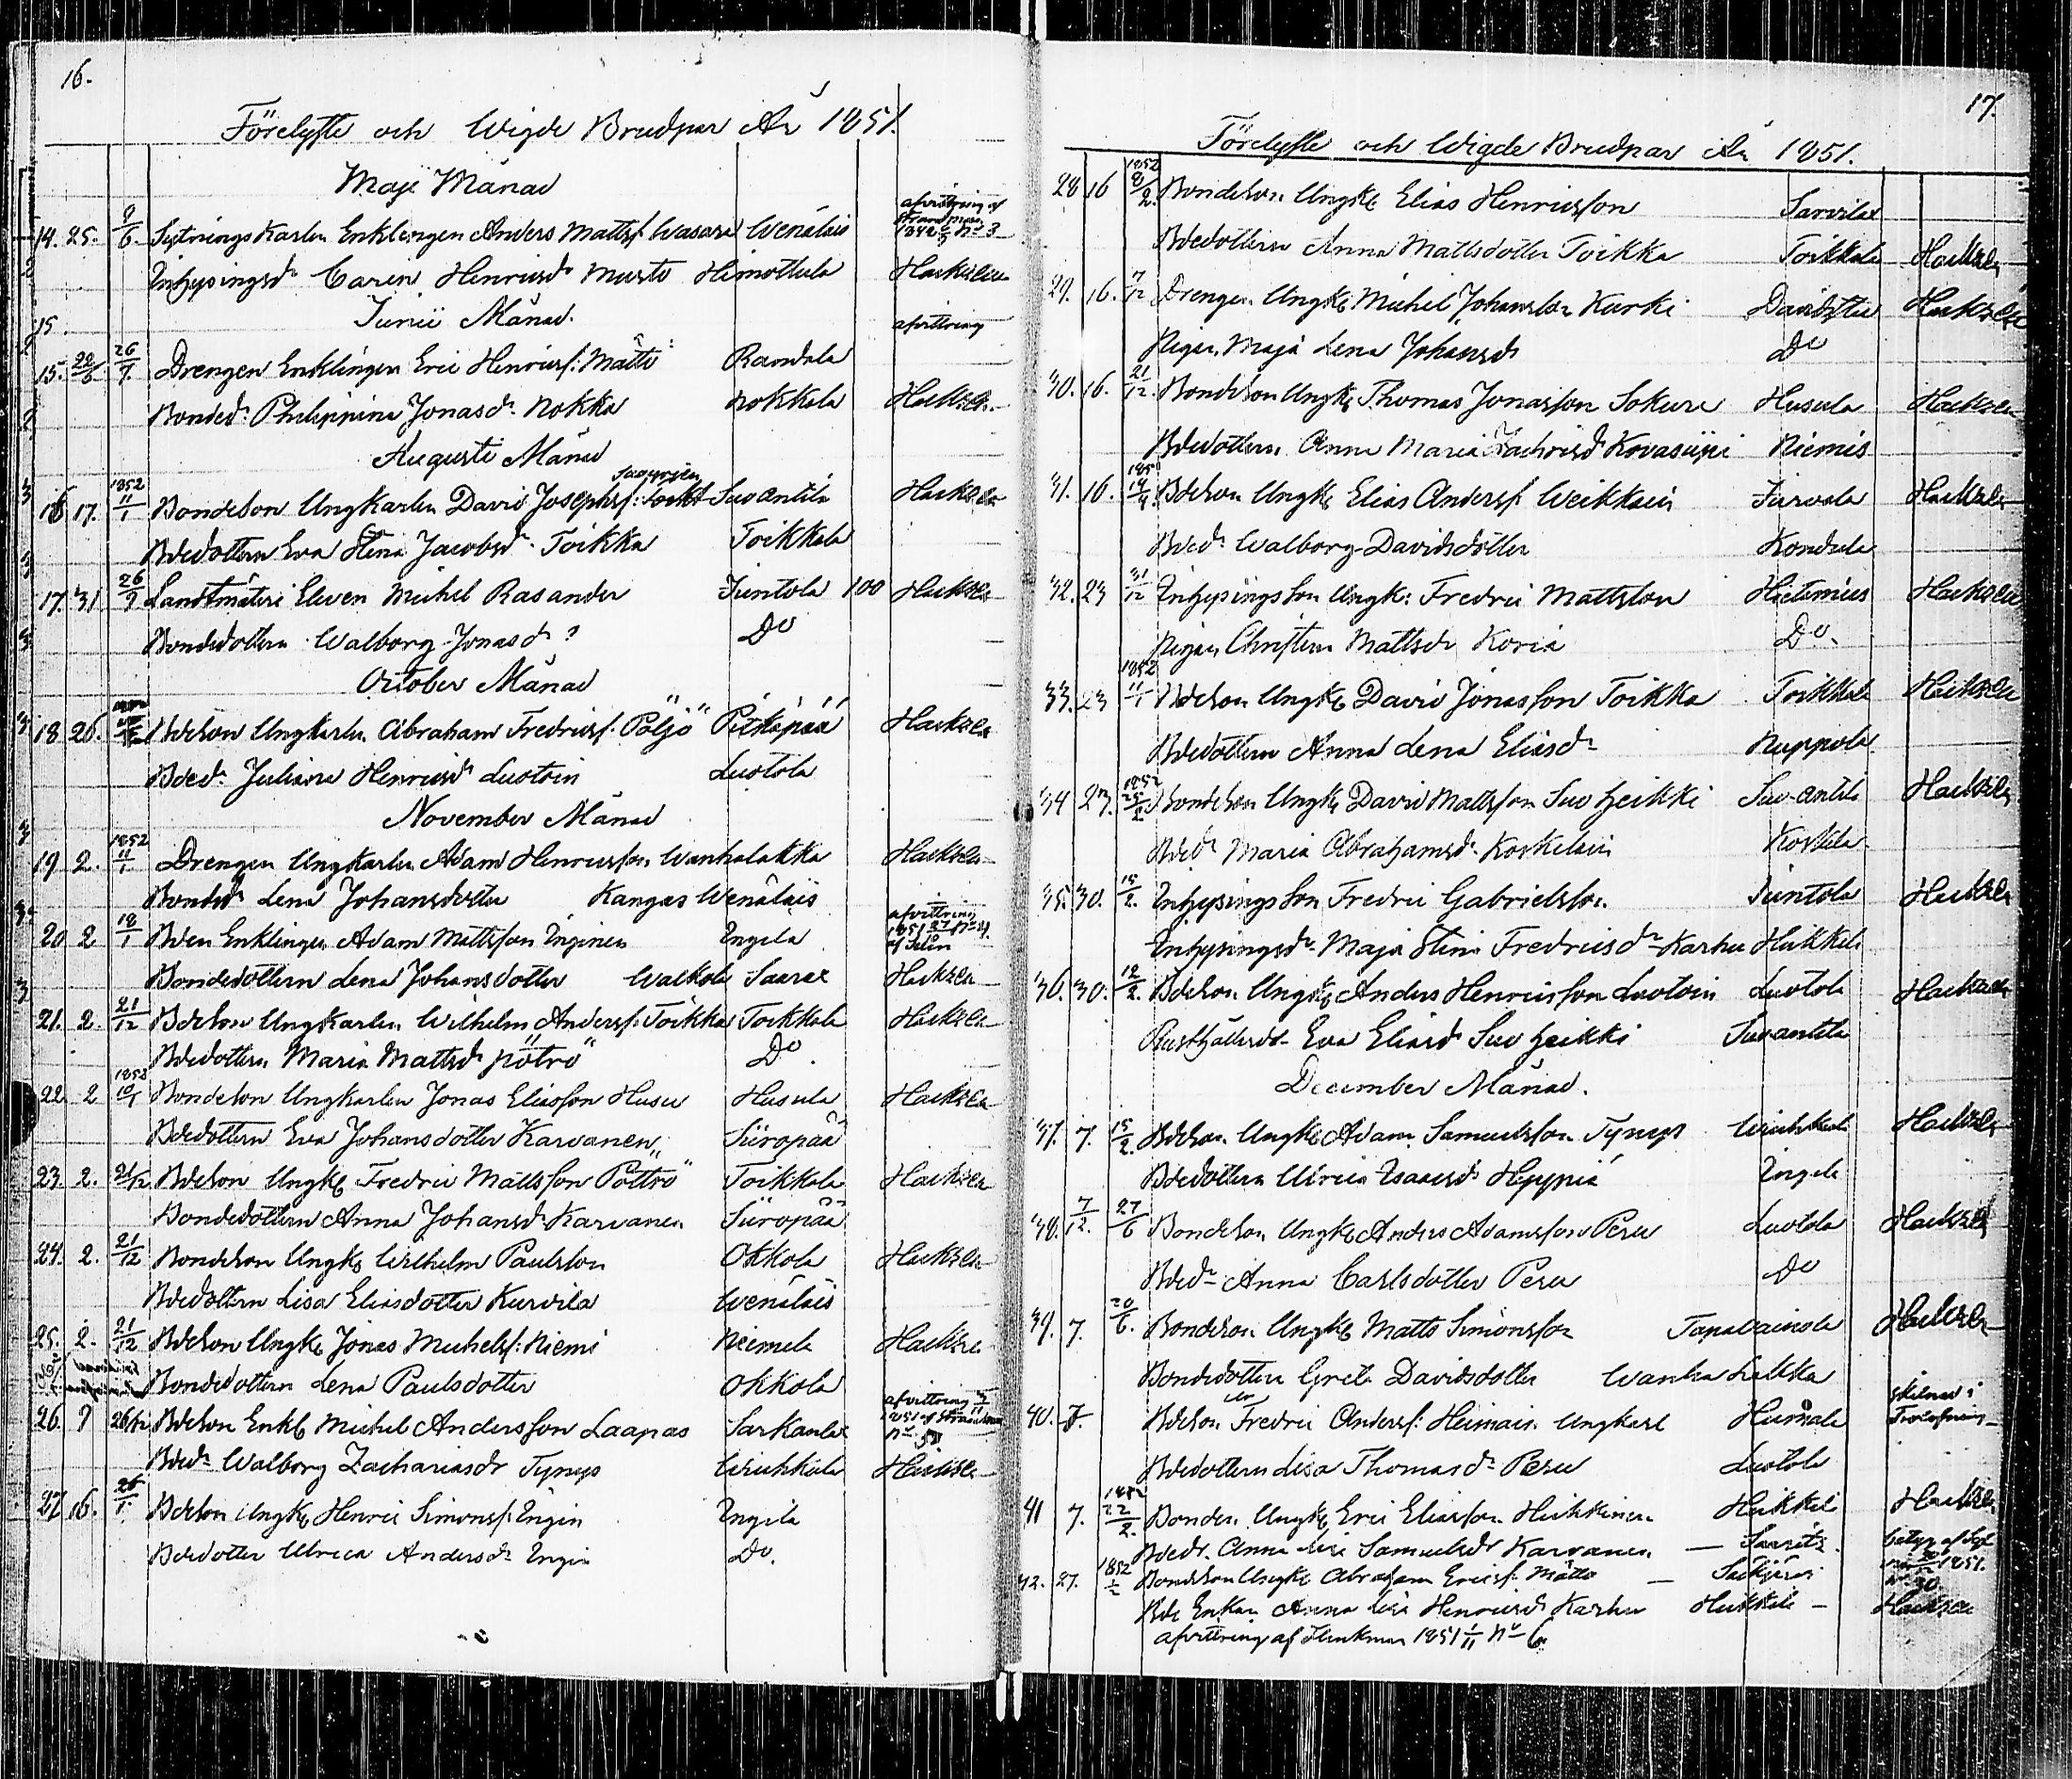 16.
Förelyste och Wigde Brudpar År 1851.
Maji Månad
14. 25. 8/6. Sytnings Karlen Enklingen Anders Mattsf. Wasara Wenälais afvittring af 1842 No 3
Inhysingsdr Caren Henricsdr Musto Himottula Hackzell
Junii Månad.
15. afvittring
15. 22/6 26/7 Drengen Enklingen Eric Henricsf: Mättö Randala
Bondedr Philippina Jonasdr Nokka Nokkala Hackzell
Augusti Månad
16 17. 1852 11/1 Bondeson Ungkarlen David Josephsf: Suo Anttila Hackzell
Bdedottern Eva Stina Jacobsdr Toikka Toikkala
17. 31 26/9 Landtmäteri Eleven Michel Rasander Juntola 100 Hackzell
Bondedottern Walborg Jonasdr ? Do
October Månad
18 26. Bdeson Ungkarlen Abraham Fredricsf. Pöljö Pitkäpää Hackzell
Bdedr Juliana Henricsdr Luotoin Luotola
November Månad
19 2. 1852 11/1 Drengen Ungkarlen Adam Henricsson Wanhalakka Hackzell
Bondedr Lena Johansdotter Kangas Wenäläis
20 2 18/1 Bden Enklingen Adam Mattsson Inginen Ingila afvittring 1851 27/10
Bondedottern Lena Johansdotter Walkola Saarae Hackzell
21. 2. 21/12 Bdeson Ungkarlen Wilhelm Andersf. Toikka Toikkala Hackzell
Bdedottern Maria Mattsdr Pötrö Do.
22 2 1852 10/1 Bondeson Ungkarlen Jonas Eliasson Husu Husula Hackzell
Bdedottern Eva Johansdotter Karvanen Süropää
23. 2. 21/12 Bdeson Ungk. Fredric Mattsson Pöttrö Toikkala Hackzell
Bondedottern Anna Johansdr Karvanen Süropää
24. 2. 21/12 Bondeson Ungk. Wilhelm Paulsson Okkola Hackzell
Bdedottern Lisa Eliasdotter Kurvila Wenäläis
25. 2. 21/12 Bdeson Ungk. Jonas Michelsf: Niemi Niemelä Hackzell
Bondedottern Lena Paulsdotter Okkola
26. 9 26/12 Bdeson Enkl. Michel Andersson Laapas Sarkanlax afvittring 1851 af No 51
Bdedr Walborg Zachariasdr Tynys Wirickala Hackzell
27 16. 26/1. Bdeson Ungk. Henric Simonsf. Ingin Ingila
Bdedotter Ulrica Andersdr Ingin Do.
17.
Förelyste och Wigde Brudpar År 1851.
28 16 1852 8/2. Bondeson Ungk. Elias Henricsson Sarvilax
Bdedottern Anna Mattsdotter Toikka Toikkala Hackzell
29. 16. 7/12 Drengen Ungk. Michel Johansson Kurki Davidstad Hackzell
Pigan Maja Lena Johansdr Do
30. 16. 21/12. Bondeson Ungk. Thomas Jonasson Sokura Husula Hackzell
Bdedottern Anna Maria Zachrisdr Kovasiipi Niemis
31. 16. Bdeson Ungk. Elias Andersf. Weikkain Jurvala Hackzell
Bdedr Walborg Davidsdotter Kondula
32. 23 31/12 Inhysings Son Ungk: Fredric Mattsson Hietimies Hackzell
Pigan Christina Mattsdr Koria Do.
33. 23 1852 11/1 Bdeson Ungk. David Jonasson Toikka Toikkala Hackzell
Bdedottern Anna Lena Eliasdr Nuppola
34 23. 1852 25/2 Bondeson Ungk. David Mattsson Suo Heikki Suo-antila Hackzell
Bdedr Maria Abrahamsdr Koskelain Koskela
35. 30. 15/2. Inhysings Son Fredric Gabrielsson Juntola Hackzell
Inhysingsdr Maja Stina Fredricsdr Karhu Hukkela
36. 30. 12/2. Bdeson Ungk. Anders Henricsson Luotoin Luotola Hackzell
Rusthållarsdr Eva Eliasdr Suo Heikki Suoantila
December Månad.
37. 7. 15/2. Bdeson Ungk. Adam Samuelsson Tynys Wirickala Hackzell
Bdedottern Ulrica Isaacsdr Heppiä Ingila
38. 7/12. 27/6 Bondeson Ungk. Anders Adamsson Peru Luotola Hackzell
Bdedr Anna Carlsdotter Peru Do
39. 7. 20/6. Bondeson Ungk. Matts Simonsson Tapavainola Hackzell
Bondedottern Greta Davidsdotter Wanha Lakka
40. 7. Bdeson Fredric Andersf: Heimain Ungkarl Heimala skilnad i Trolofning
Bdedottern Lisa Thomasdr Peru Luotola
41 7. 1852 22/2. Bonden Ungk. Eric Eliasson Heikkinen Heikkilä Hackzell
Bdedr. Anna Lisa Samuelsdr Karvanen —
42. 27. 1852 1/2 Bondeson Ungk. Abraham Ericsf. Mättö — Säkjärvi 1851. No 30
Bde Enkan Anna Lisa Henricsdr Karhu Hukkila — Hackzell
afvittring af Flinkman 1851 1/11 No 6